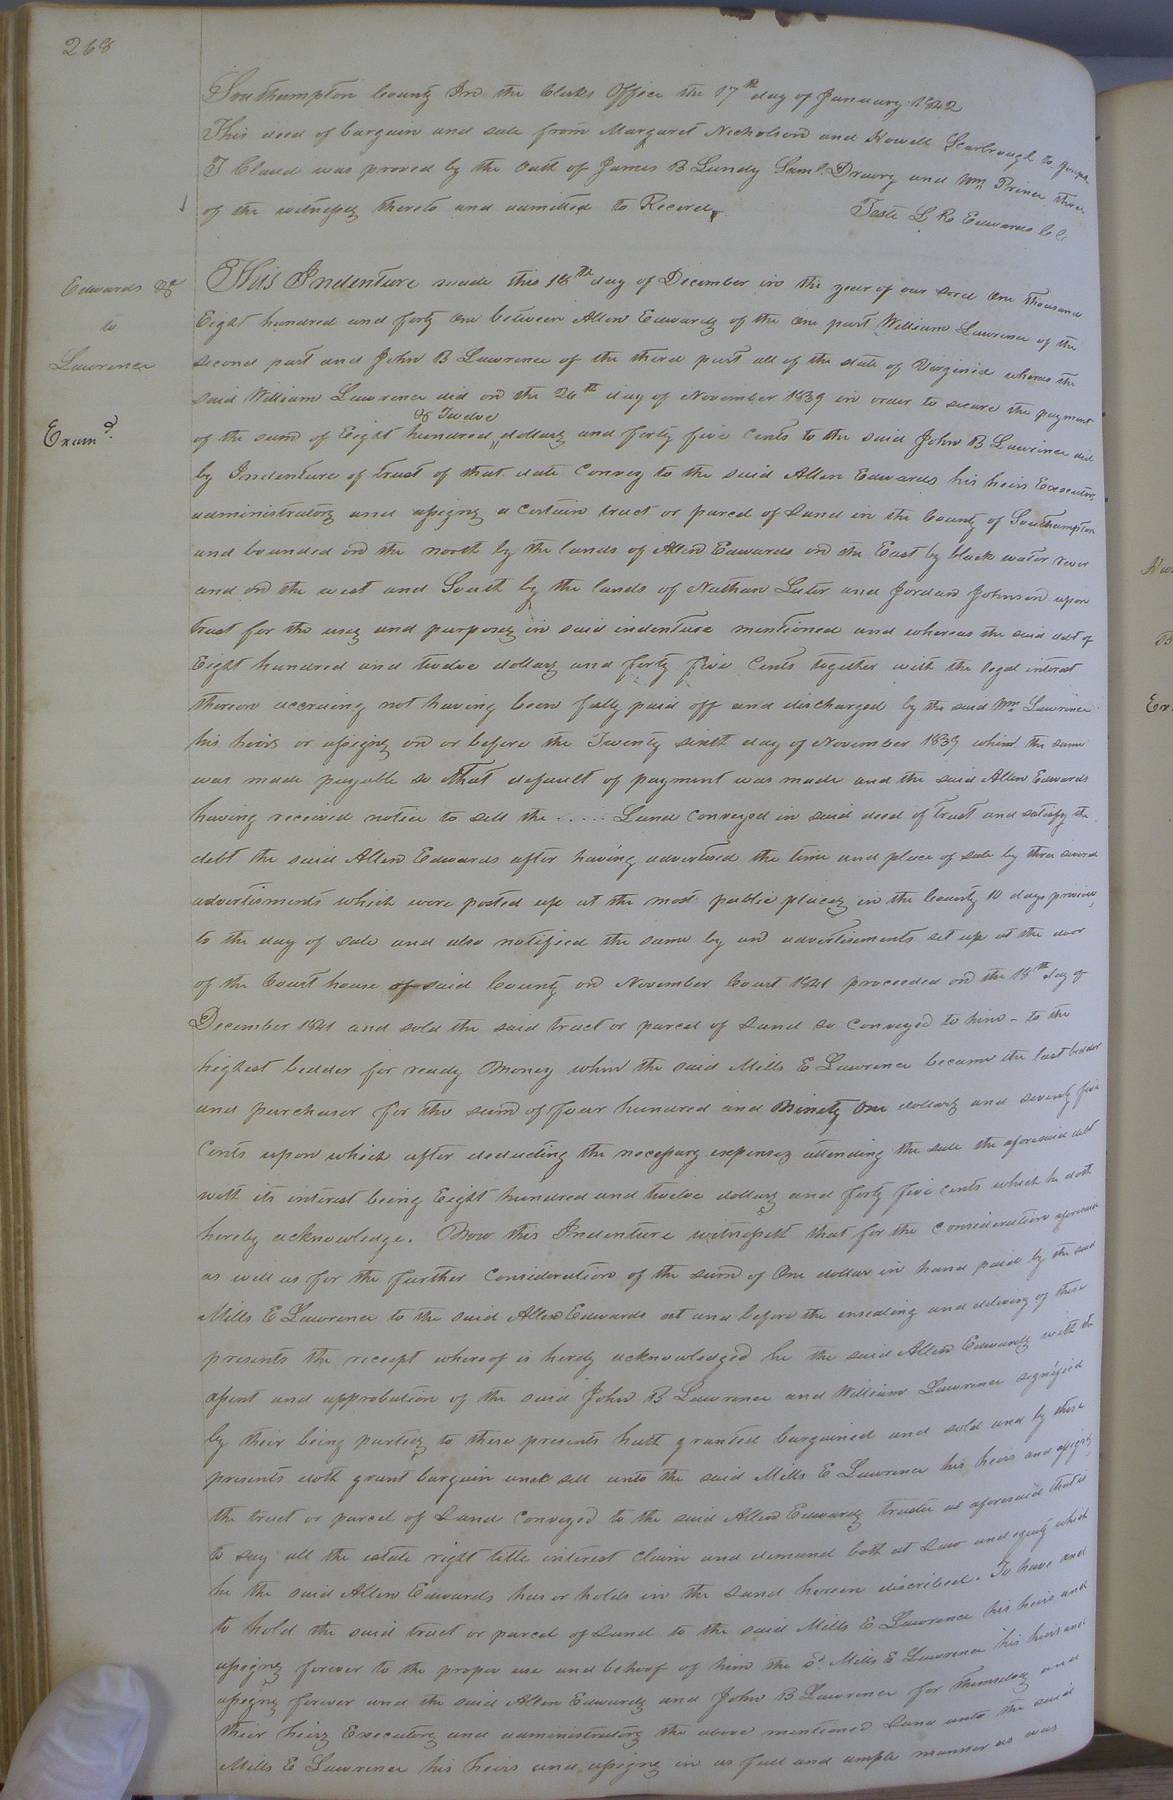 268
Southampton County In the Clerks Office the 17th day of January 1842
This deed of bargain and sale from Margaret Nicholson and Howell Scarbrough to Joseph
T Claud was proved by the Oath of James B Lundy Saml. Drewry and Wm Prince three
of the witnesses thereto and admitted to Record,
Teste L R Edwards C C
Edwards &c
to
Lawrence
Examd.
This Indenture made this 18th day of December in the year of our Lord One thousand
Eight hundred and forty One between Allen Edwards of the one part William Lawrence of the
second part and John B Lawrence of the third part all of the state of Virginia whereas the
said William Lawrence did on the 26th day of November 1839 in order to secure the payment
of the sum of Eight hundred & Twelve dollars and forty five cents to the said John B Lawrence did
by Indenture of trust of that date Convey to the said Allen Edwards his heirs Executors
administrators and assigns a Certain tract or parcel of Land in the County of Southampton
and bounded on the north by the lands of Allen Edwards on the East by black water river
and on the west and South by the lands of Nathan Later and Jordan Johnson upon
trust for the uses and purposes in said indenture mentioned and whereas the said debt of
Eight hundred and twelve dollars and forty five Cents together with the legal interest
thereon accruing not having been fully paid off and discharged by the said Wm Lawrence
his heirs or assigns on or before the Twenty sixth day of November 1839 when the same
was made payable so that default of payment was made and the said Allen Edwards
having received notice to sell the ..... Land Conveyed in said deed of trust and satisfy the
debt the said Allen Edwards after having advertised the time and place of sale by three several
advertisments which were posted up at the most public places in the County 10 days previous
to the day of sale and also notified the same by an advertisements set up at the door
of the Court house of said County on November Court 1841 proceeded on the 18th day of
December 1841 and sold the said tract or parcel of Land so Conveyed to him - to the
highest bedder for ready Money when the said Mills E Lawrence became the last bedder
and purchaser for the sum of four hundred and Ninety One dollars and seventy five
Cents upon which after deducting the necessary expenses attending the sale the aforesaid debt
with its interest being Eight hundred and twelve dollars and forty five cents which he doth
hereby acknowledge. Now this Indenture witnesseth that for the Consideration aforesaid
as well as for the further Consideration of the sum of One dollar in hand paid by the said
Mills E Lawrence to the said Allen Edwards at and before the ensealing and delivery of these
presents the receipt whereof is hereby acknowledged he the said Allen Edwards with the
assent and approbation of the said John B Lawrence and William Lawrence signified
by their being parties to these presents hath granted bargained and sold and by these
presents doth grant bargain and sell unto the said Mills E Lawrence his heirs and assigns
the tract or parcel of Land Conveyed to the said Allen Edwards trustee as aforesaid that is
to say all the estate right title interest claim and demand both at Law and equity which
he the said Allen Edwards has or holds in the Land herein discribed. To have and
to hold the said tract or parcel of Land to the said Mills E Lawrence his heirs and
assigns forever to the proper use and behoof of him the sd Mills E Lawrence his heirs and
assigns forever and the said Allen Edwards and John B Lawrence for themselves and
their heirs Executors and administrators the above mentioned Land unto the said
Mills E Lawrence his heirs and assigns in as full and ample manner as was